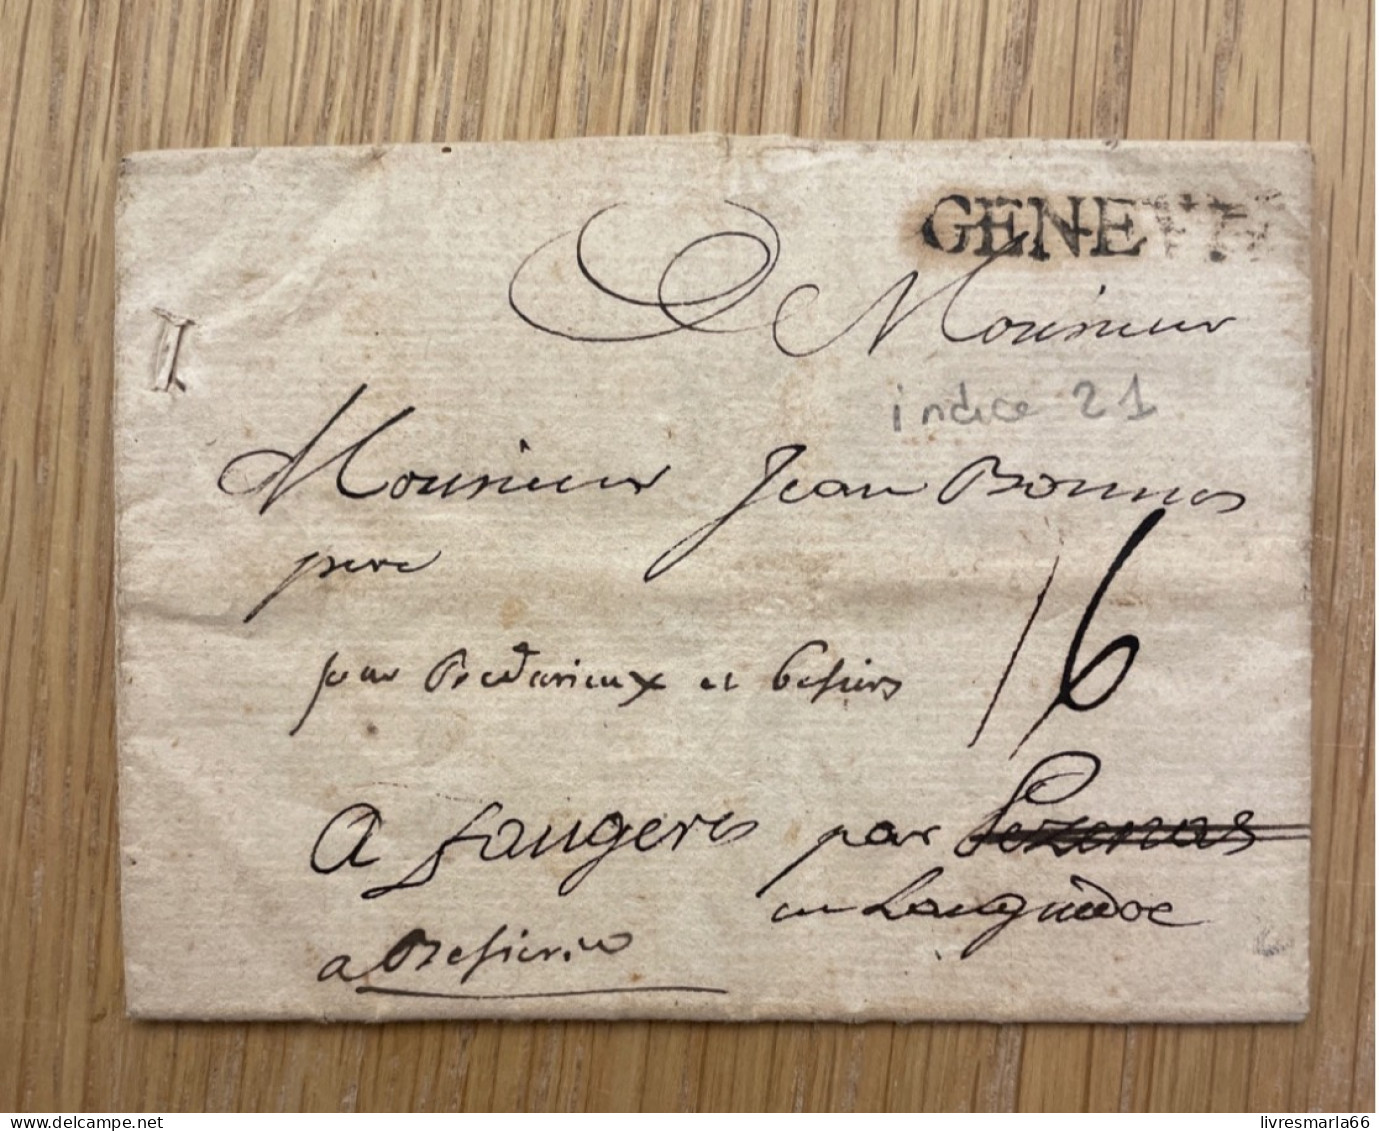 GENEVE
Monsieur
indice 21
Monsieur Jean Bonnes
pere
16
par Bedarieux et besiers
A faugeres par Pezenas
en Languedoc
a Besiers
livresmarla66